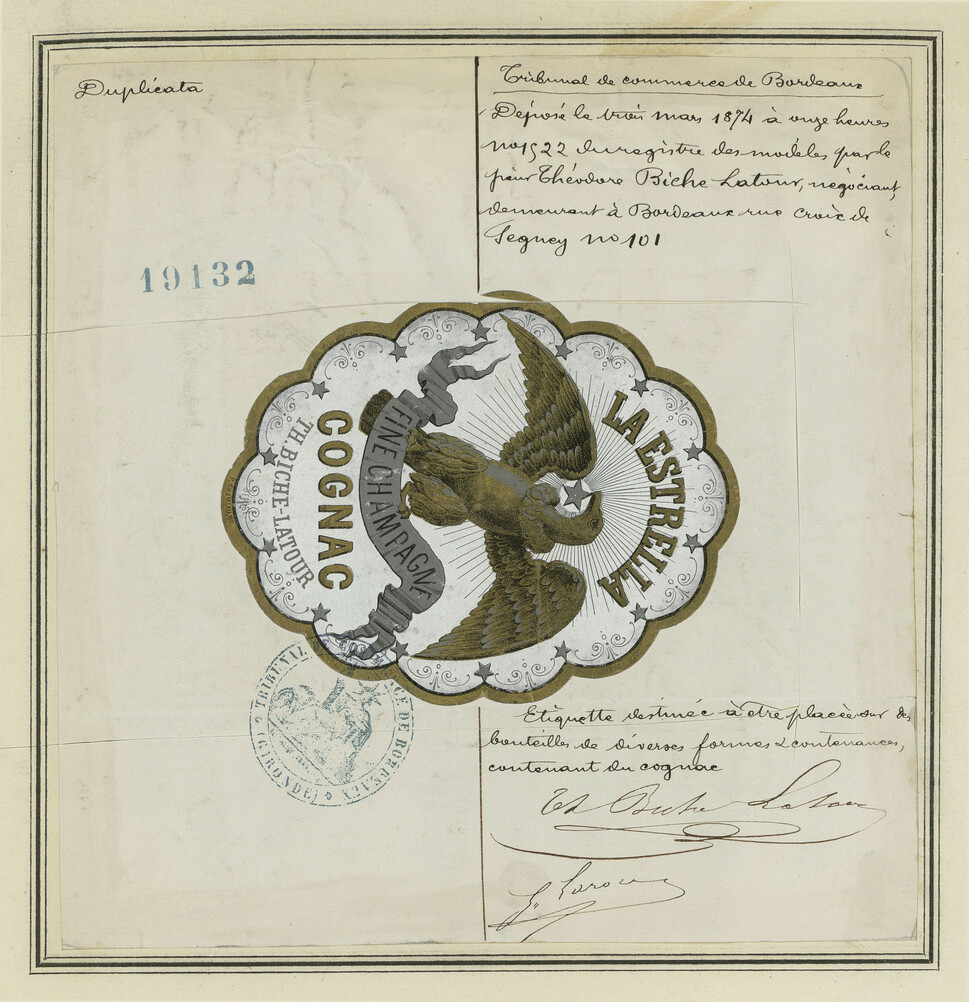 Duplicata
Tribunal de commerce de Bordeaux
Déposé le trois mars 1874 à onze heures
no 1522 du registre des modèles par le
sieur Théodore Biche Latour, négociant,
demeurant à Bordeaux rue Croix de
Segney no 101
19132
LA ESTRELLA
FINE CHAMPAGNE
COGNAC
TH. BICHE-LATOUR
TRIBUNAL DE BORDEAUX
(GIRONDE)
Etiquette destinée à être placée sur des
bouteilles de diverses formes & contenances,
contenant du cognac
Th Biche Latour